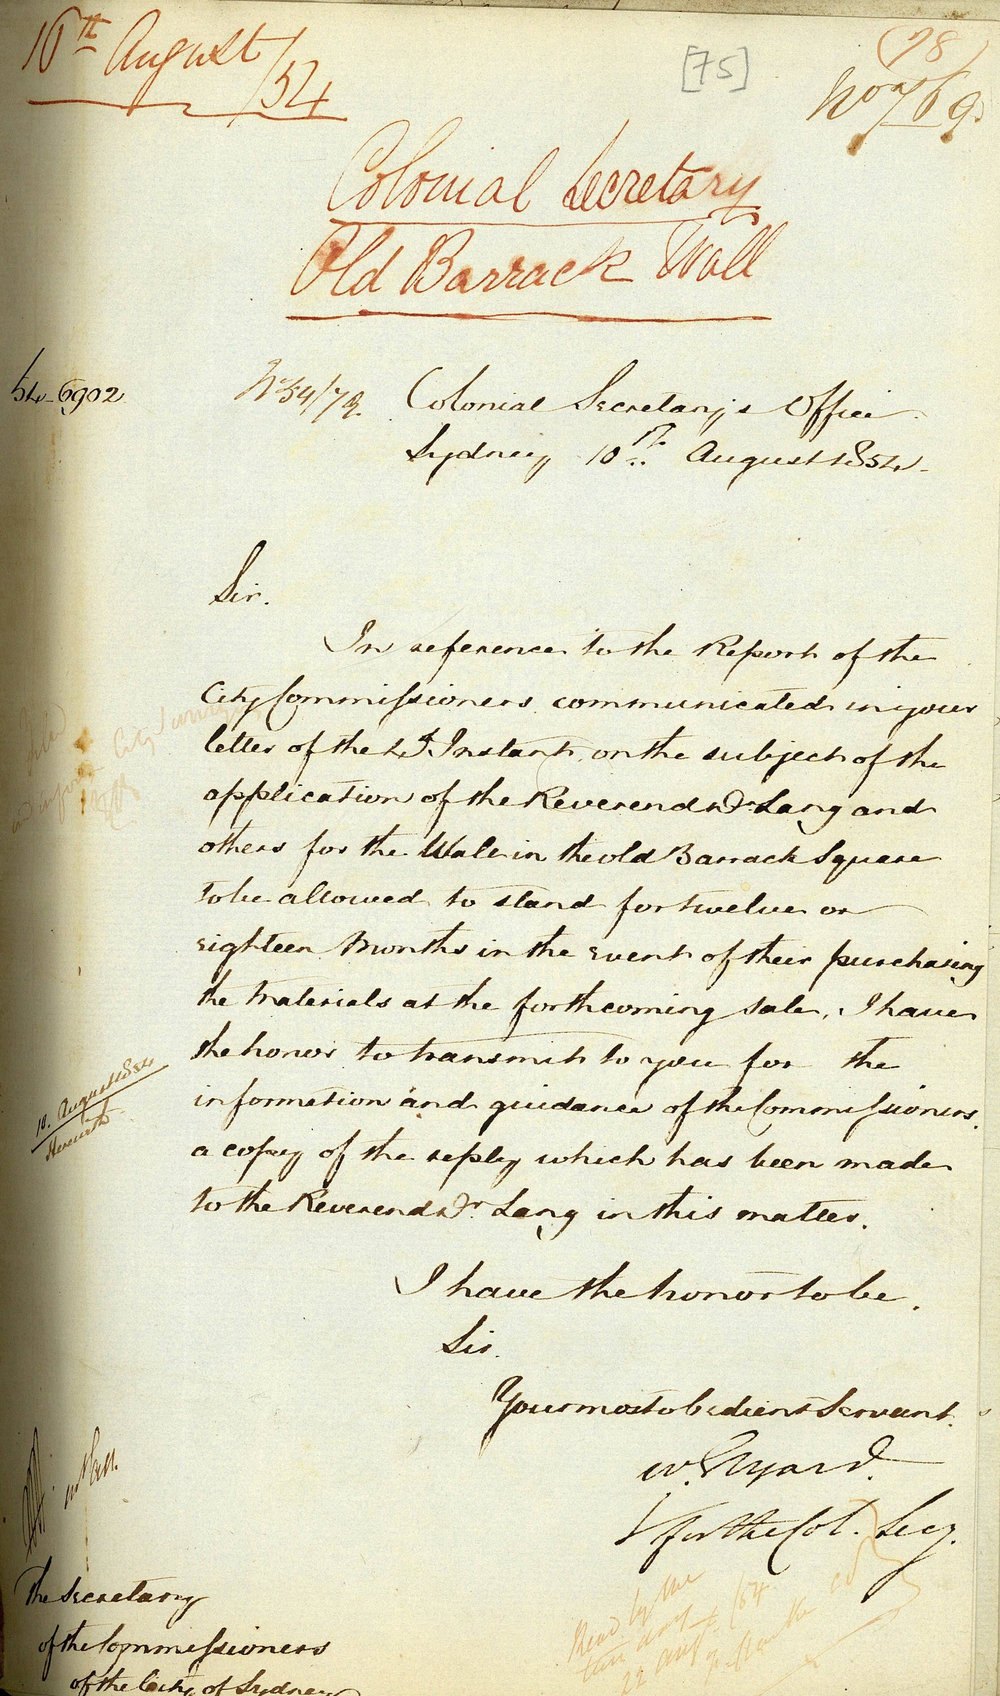 10th August
/54
[75]
(78)
No 769
Colonial Secretary
Old Barrack Wall
54-6902
No 54/79.
Colonial Secretary's Office
Sydney 10th August 1854.
Sir.
In reference to the Report of the
City Commissioners communicated in your
letter of the Instant, on the subject of the
application of the Reverend Dr Lang and
others for the Wall in the old Barrack Square
to be allowed to stand for twelve or
eighteen Months in the event of their purchasing
the Materials at the forthcoming sale, I have
the honor to transmit to you for the
information and guidance of the Commissioners.
a copy of the reply which has been made
to the Reverend Dr Lang in this matter.
10. August 1854
Herewith
I have the honor to be.
Sir.
Your most obedient Servant.
W. Elyard.
for the Col. Secy.
The Secretary
of the Commissioners
of the City of Sydney